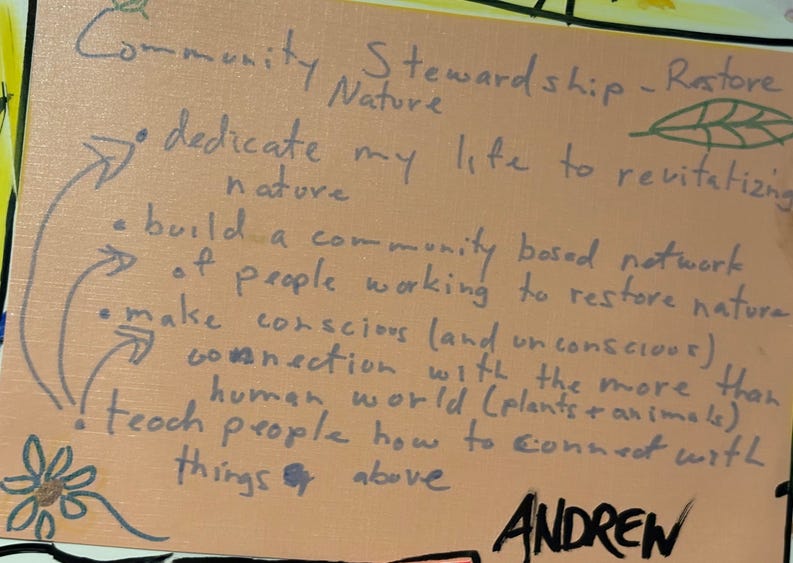 Community Stewardship - Restore
Nature
• dedicate my life to revitalizing
nature
• build a community based network
of people working to restore nature
• make conscious (and unconscious)
connection with the more than
human world (plants + animals)
• teach people how to connect with
things above
ANDREW